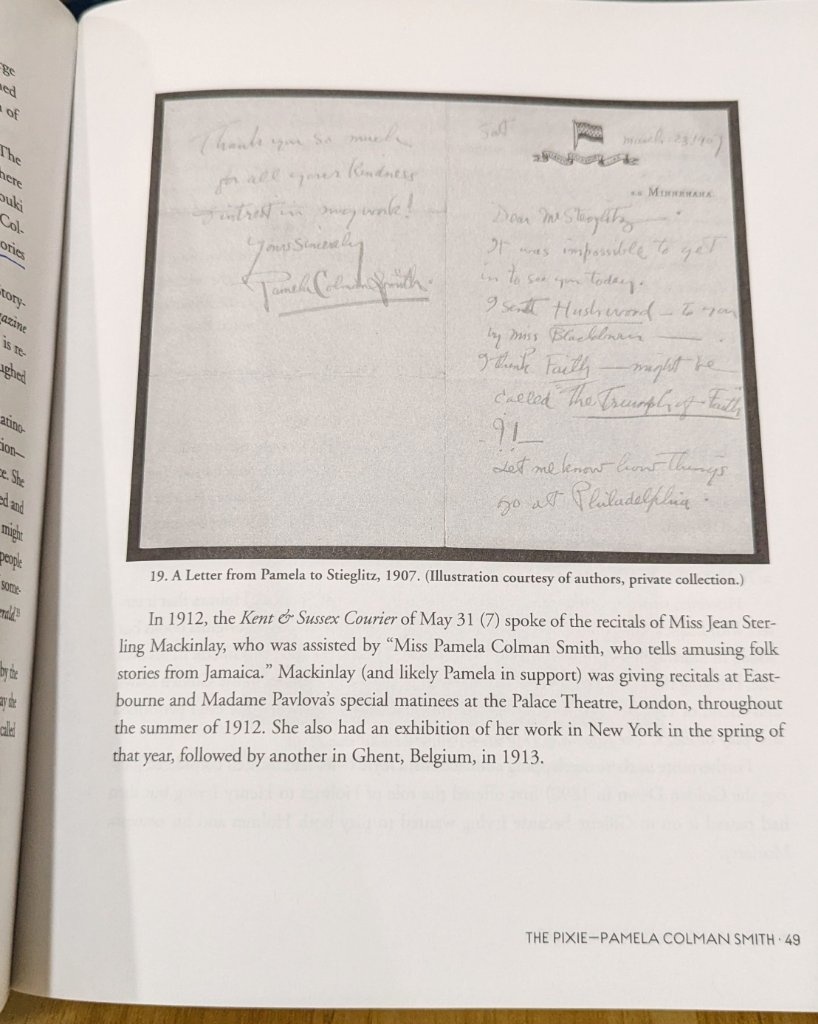 rge
ned
of
The
here
ouki
Col-
ories
tory-
azine
is re-
ughed
atino-
ion—
ce. She
ed and
might
people
some-
erald."
by the
ay the
called
Thank you so much
for all your Kindness
& intrest in my work!
Yours Sincerely
Pamela Colman Smith.
Sat
March 23 1907
S.S. MINNEHAHA.
Dear Mr Steiglitz — .
It was impossible to get
in to see you today.
I sent Hushword — to you
by Miss — .
I think Faith — might be
called "The Triumph of Faith
- ?! —
Let me know how things
go at Philadelphia .
19. A Letter from Pamela to Stieglitz, 1907. (Illustration courtesy of authors, private collection.)
In 1912, the Kent & Sussex Courier of May 31 (7) spoke of the recitals of Miss Jean Ster-
ling Mackinlay, who was assisted by “Miss Pamela Colman Smith, who tells amusing folk
stories from Jamaica.” Mackinlay (and likely Pamela in support) was giving recitals at East-
bourne and Madame Pavlova’s special matinees at the Palace Theatre, London, throughout
the summer of 1912. She also had an exhibition of her work in New York in the spring of
that year, followed by another in Ghent, Belgium, in 1913.
THE PIXIE—PAMELA COLMAN SMITH · 49